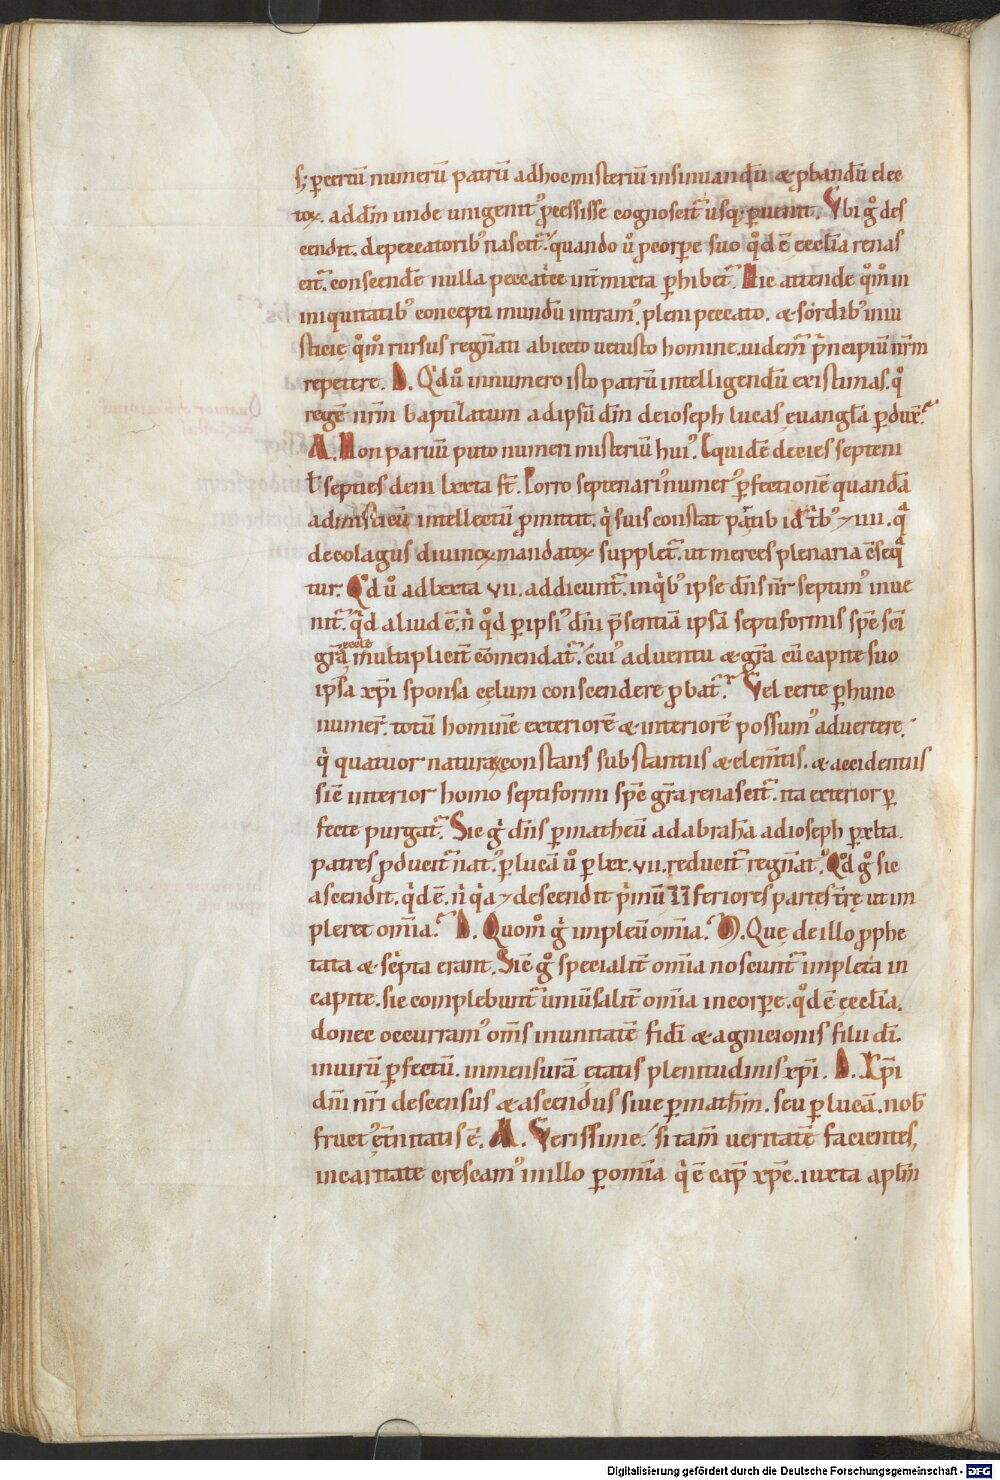 s; p̱ certū numerū patrū ad hoc misteriū insinuandū & ꝓbandū elec
toꝝ. ad dn̄m unde unigenit᷒ ꝓcessisse cognoscit᷑ usq; ꝑuenit. Vbi gͦ des
cendit. de peccatorib᷒ nascit᷑. quando uͦ ꝓ corꝑe suo qͦd ē ecclia renas
cit᷑. conscendē nulla peccatͥce int̄mixta ꝑhibet᷑. Hic attende qͦmͦ in
iniquitatib᷒ concepti mundū intram᷒. pleni peccato. & sordib᷒ iniu
sticię qͦmͦ rursus regn̄ati abiecto uetusto homine. uidem᷑ pͥncipiū nr̄m
repetere. D. Qͦd uͦ in numero isto patrū intelligendū existimas. qͦ
regē nr̄m baptizatum ad ipsū dn̄m de ioseph lucas euanglā ꝑducͭ.
A. Non paruū puto numeri misteriū hui᷒. Equidē decies septeni
ł septies deni lxxta st̄. Porro septenari᷒ numer᷒ ꝑfectionē quandā
ad misticū intellectū ꝓmittit. qͥ suis constat partib id ē tͥb᷒ & iiii. qͣ
decolagus diuinoꝝ mandatoꝝ supplet᷑. ut merces plenaria c̄seqͣ
tur. Qͦd uͦ ad lxxta vii. addicunt᷑. in qͥb᷒ ipse dn̄s nr̄ septim᷒ inue
nit᷑. qͥd aliud ē. nͥ qͦd ꝑ ipsi᷒ dn̄i p̄sentiā ipsā septiformis spc̄ sc̄i
gr̄ā eccle multiplicit̄ cōmendat᷑. cui᷒ aduentu & gr̄a cū capite suo
ipsa xp̄i sponsa cęlum conscendere ꝓbat᷑. Vel certe ꝑ hunc
numer̄. totū hominē exteriorē & interiorē possum᷒ aduertere.
qͥ quatuor naturaꝝ constans substantiis & elem̄tis. & accidentiis
sic̄ interior homo septiformi spc̄ gr̄a renascit᷑. ita exterior ꝑ
fecte purgat᷑. Sic gͥ dn̄s ꝑ matheū ad abrahā ad ioseph ꝑ xlta.
patres ꝓducit᷑ nat᷒. ꝑ lucā uͦ ꝑ lxx. vii. reducit᷑ regn̄at᷒. Qͦd gͦ sic
ascendit. qͥd ē. nͥ qͥa & descendit pͥmū ii inferiores partes tr̄ę ut im
pleret om̄ia. D. Quomͦ gͥ impleū om̄ia. M. Quę de illo ꝓphe
tata & scͥpta erant. Sic̄ gͦ specialit̄ om̄ia noscunt᷑ impleta in
capite. sic complebunt᷑ uniūsalit̄ om̄ia in corꝑe. qͦd ē ecclia.
donec occurram᷒ om̄s in unitatē fidi & agnicionis filii di.
in uirū ꝑfectū. in mensurā ętatis plenitudinis xp̄i. D. Xp̄i
dn̄i nr̄i descensus & ascensus siue ꝑ mathm̄. seu ꝑ lucā. nob̄
fruet᷒ ęt̄nitatis ē. M. Verissime. si tam̄ ueritatē facientes,
in caritate crescam᷒ in illo ꝑ om̄ia qͥ ē cap̄ xp̄c. iuxta aplm̄